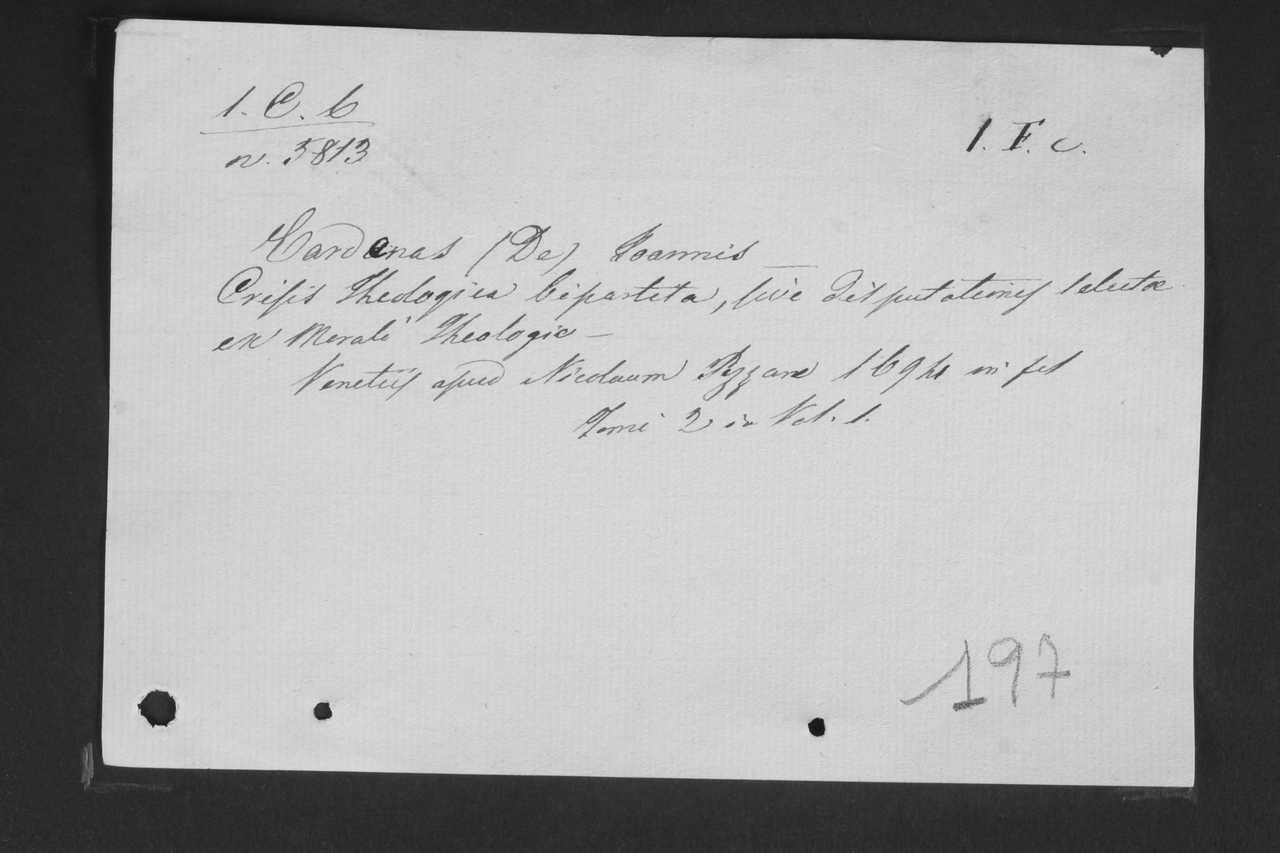 1. C. b
n. 5813
1. F. c.
Cardenas (De) Joannis
Crisis Theologica bipartita, sive disputationes selectæ
ex Morali Theologia –
Venetiis apud Nicolaum Pezzana 1694 in fol
Tomi 2 in Vol. 1.
197